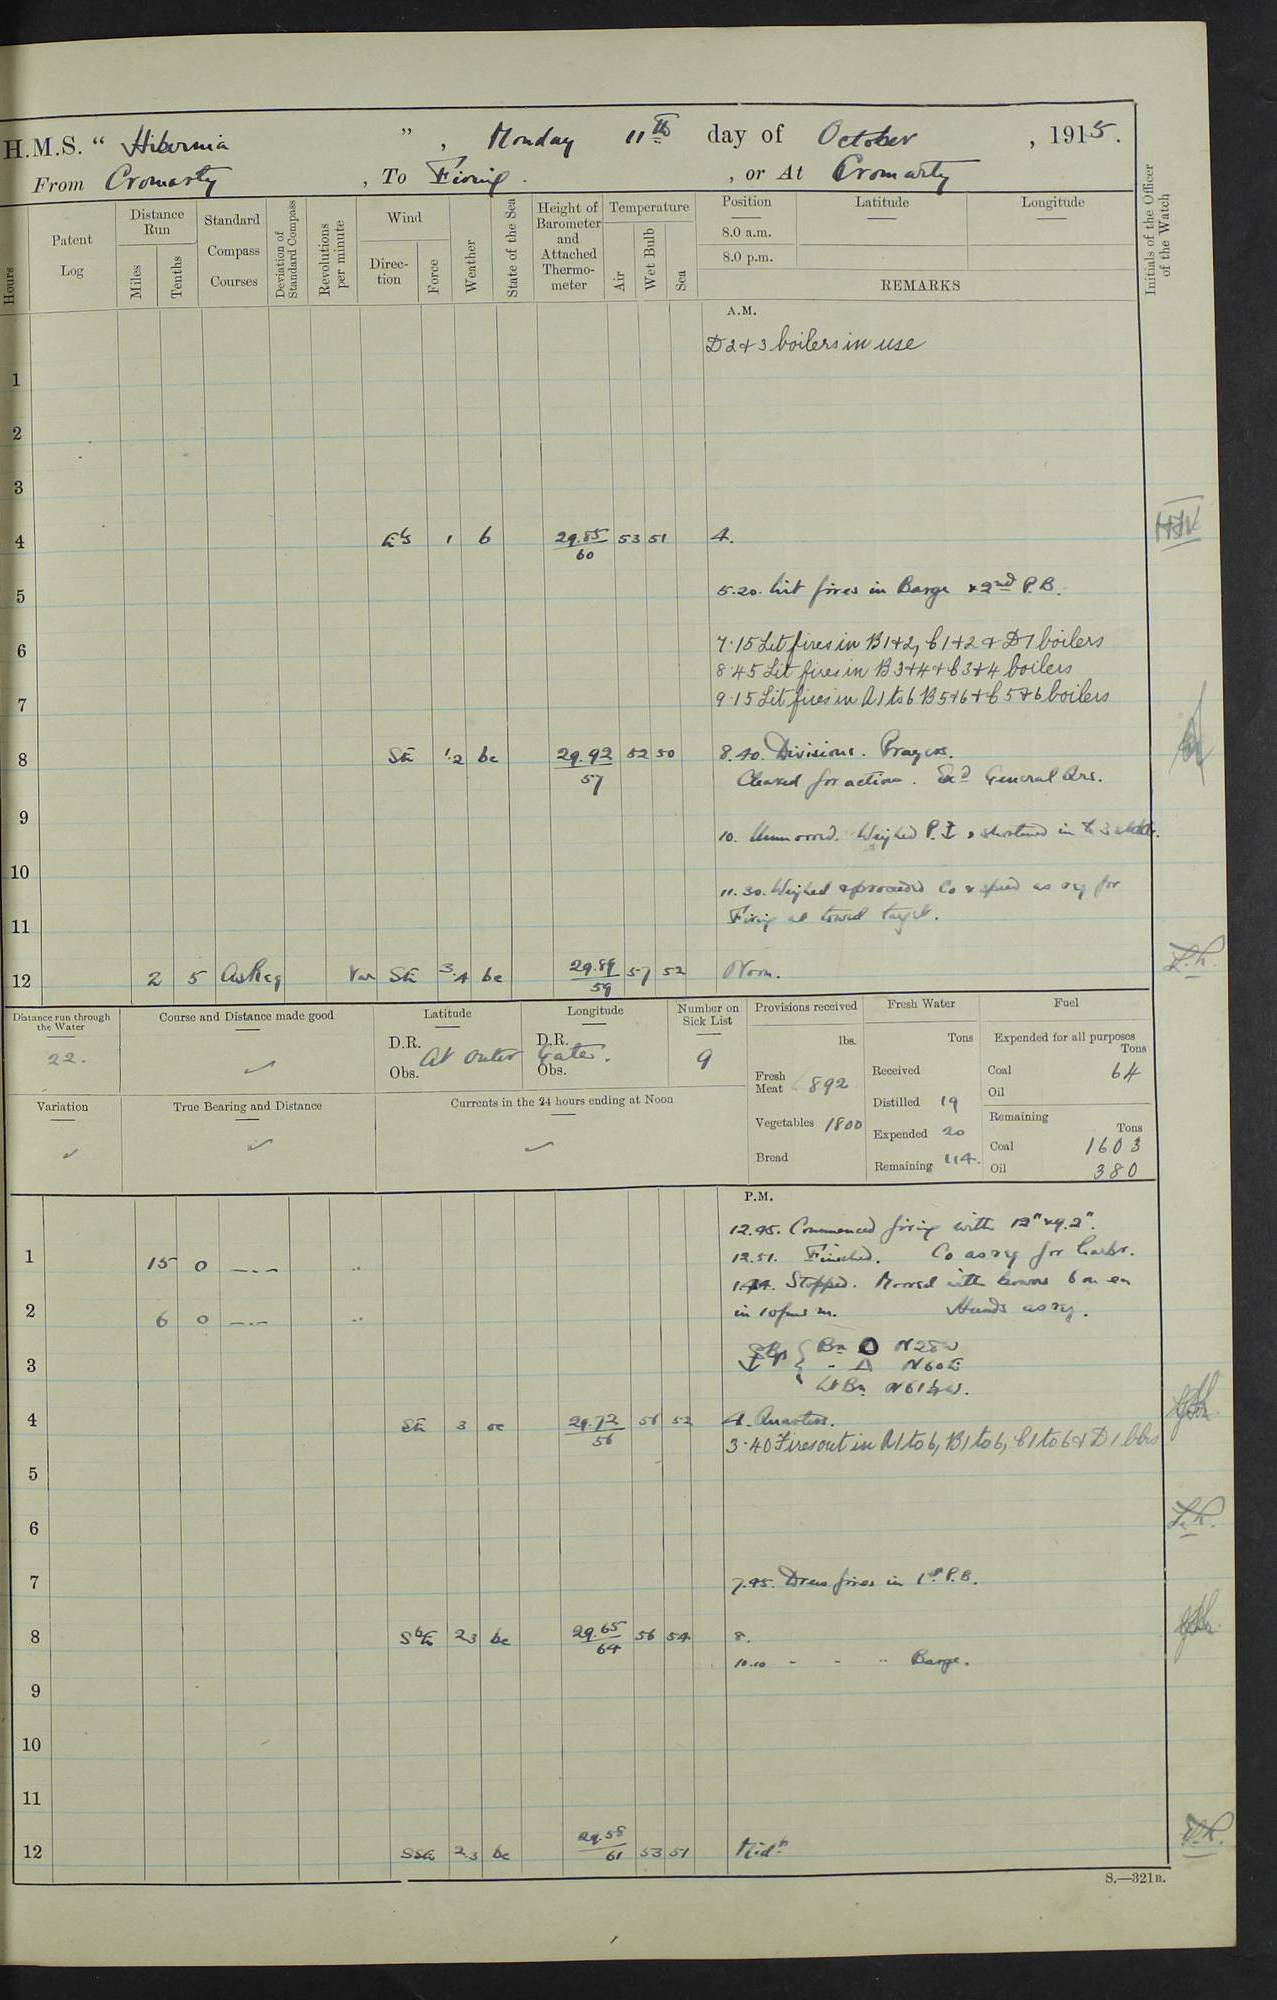 H.M.S. “ Hibernia ” , Monday 11th day of October , 1915.
From Cromarty , To Firing . , or At Cromarty
Hours
Patent Log
Distance Run
Miles
Tenths
Standard Compass Courses
Deviation of Standard Compass
Revolutions per minute
Wind
Direction
Force
Weather
State of the Sea
Height of Barometer and Attached Thermometer
Temperature
Air
Wet Bulb
Sea
Position
8.0 a.m.
8.0 p.m.
Latitude
Longitude
REMARKS
Initials of the Officer of the Watch
A.M.
D 2 & 3 boilers in use
1
2
3
4 1 b 29.85/60 53 51 4.
5 5.20. Lit fires in Barge & 2nd P.B.
6 7.15 Lit fires in B 1+2, C 1+2 & D 1 boilers
8.45 Lit fires in B 3+4 + C 3+4 boilers
7 9.15 Lit fires in A 1 to 6 B 5+6 + C 5+6 boilers
8 SE 1.2 bc 29.92/57 52 50 8.40. Divisions. Prayers.
Cleared for action. Exd General Qrs.
9
10. Unmoored. Weighed P. ⚓ & shortened in to 3
10
11.30. Weighed & proceeded Co & speed as req for
11 Firing at towed target.
12 2 5 As Req Var SE 3.4 bc 29.89/59 57 52 Noon.
Distance run through the Water
22.
Course and Distance made good
✓
Latitude
D.R.
Obs.
At Outer
Longitude
D.R.
Obs.
Gate.
Number on Sick List
9
Provisions received
lbs.
Fresh Meat 892
Vegetables 1800
Bread
Fresh Water
Tons
Received
Distilled 19
Expended 20
Remaining 114.
Fuel
Expended for all purposes
Tons
Coal 64
Oil
Remaining
Tons
Coal 1603
Oil 380
Variation
✓
True Bearing and Distance
✓
Currents in the 24 hours ending at Noon
✓
P.M.
12.45. Commenced firing with 12" & 9.2".
1 15 0 12.51. Finished. Co as req for harbr.
Stopped. Moored with bowers 6 on ea
2 6 0 in 10 fms m. Hands as req.
Bn N 28 W
3 " △ N 60 E
Lt Bn N 61½ W.
4 SE 3 oc 29.72/56 56 52 4. Quarters.
3.40 Fires out in A 1 to 6, B 1 to 6, C 1 to 6 & D 1 blrs
5
6
7 7.45. Drew fires in 1st P.B.
8 SbE 2.3 bc 29.65/64 56 54 8.
10.10 " " " Barge.
9
10
11
12 SSE 2.3 bc 29.58/61 53 51 Midt
S.—321B.